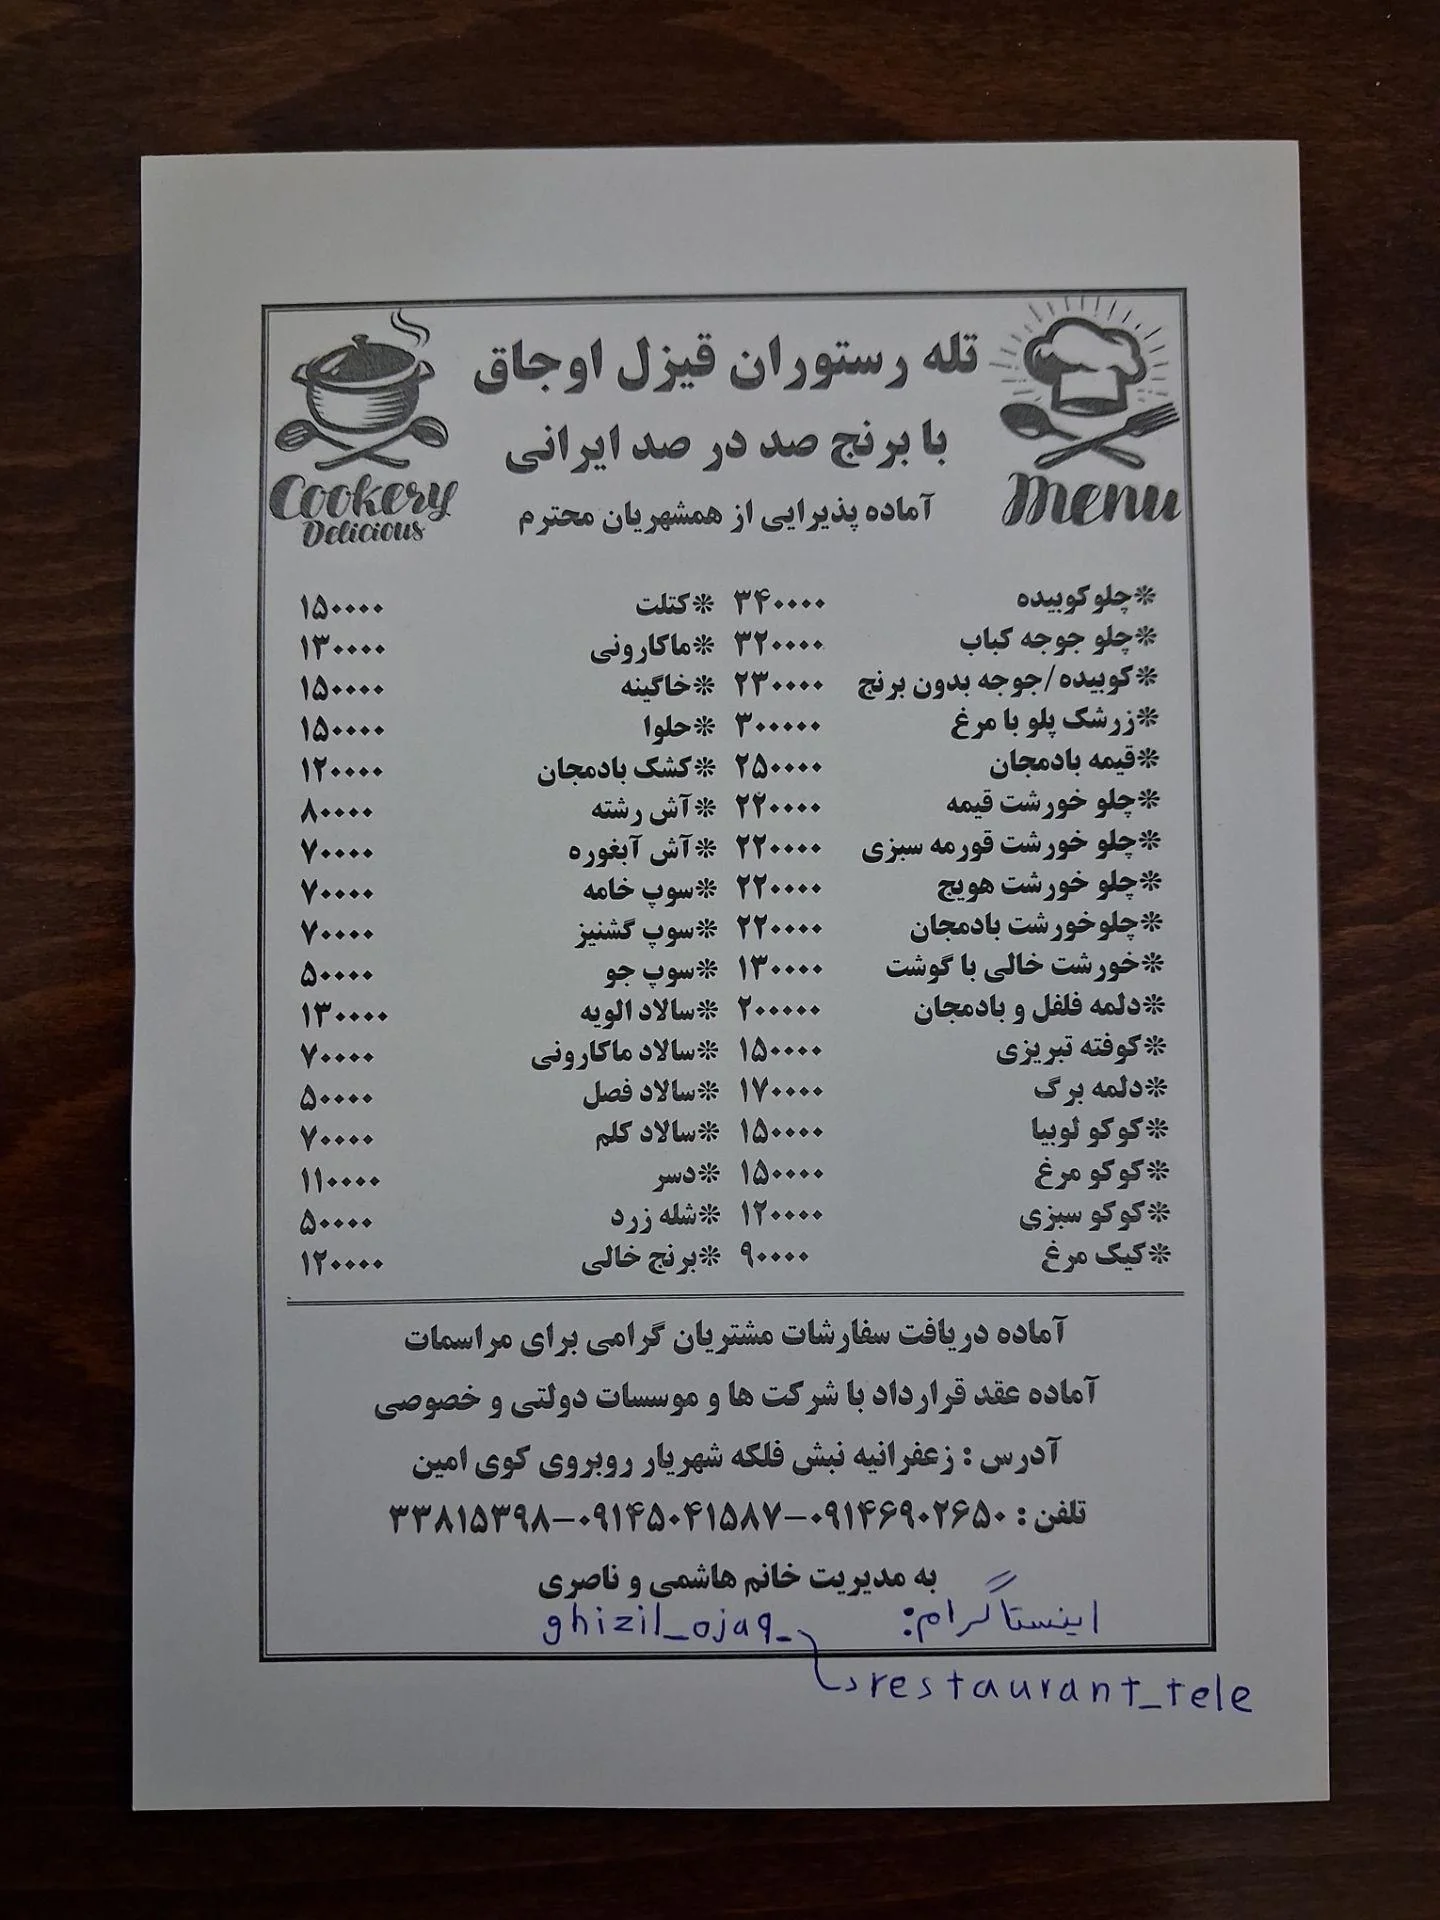 تله رستوران قیزل اوجاق
با برنج صد در صد ایرانی
آماده پذیرایی از همشهریان محترم
Menu
Cookery
Delicious
❊چلوکوبیده ۳۴۰۰۰۰
❊چلو جوجه کباب ۳۲۰۰۰۰
❊کوبیده/جوجه بدون برنج ۲۳۰۰۰۰
❊زرشک پلو با مرغ ۳۰۰۰۰۰
❊قیمه بادمجان ۲۵۰۰۰۰
❊چلو خورشت قیمه ۲۲۰۰۰۰
❊چلو خورشت قورمه سبزی ۲۲۰۰۰۰
❊چلو خورشت هویج ۲۲۰۰۰۰
❊چلوخورشت بادمجان ۲۲۰۰۰۰
❊خورشت خالی با گوشت ۱۳۰۰۰۰
❊دلمه فلفل و بادمجان ۲۰۰۰۰۰
❊کوفته تبریزی ۱۵۰۰۰۰
❊دلمه برگ ۱۷۰۰۰۰
❊کوکو لوبیا ۱۵۰۰۰۰
❊کوکو مرغ ۱۵۰۰۰۰
❊کوکو سبزی ۱۲۰۰۰۰
❊کیک مرغ ۹۰۰۰۰
❊کتلت ۱۵۰۰۰۰
❊ماکارونی ۱۳۰۰۰۰
❊خاگینه ۱۵۰۰۰۰
❊حلوا ۱۵۰۰۰۰
❊کشک بادمجان ۱۲۰۰۰۰
❊آش رشته ۸۰۰۰۰
❊آش آبغوره ۷۰۰۰۰
❊سوپ خامه ۷۰۰۰۰
❊سوپ گشنیز ۷۰۰۰۰
❊سوپ جو ۵۰۰۰۰
❊سالاد الویه ۱۳۰۰۰۰
❊سالاد ماکارونی ۷۰۰۰۰
❊سالاد فصل ۵۰۰۰۰
❊سالاد کلم ۷۰۰۰۰
❊دسر ۱۱۰۰۰۰
❊شله زرد ۵۰۰۰۰
❊برنج خالی ۱۲۰۰۰۰
آماده دریافت سفارشات مشتریان گرامی برای مراسمات
آماده عقد قرارداد با شرکت ها و موسسات دولتی و خصوصی
آدرس : زعفرانیه نبش فلکه شهریار روبروی کوی امین
تلفن : ۰۹۱۴۶۹۰۲۶۵۰-۰۹۱۴۵۰۴۱۵۸۷-۳۳۸۱۵۳۹۸
به مدیریت خانم هاشمی و ناصری
اینستاگرام: ghizil_ojaq_
restaurant_tele